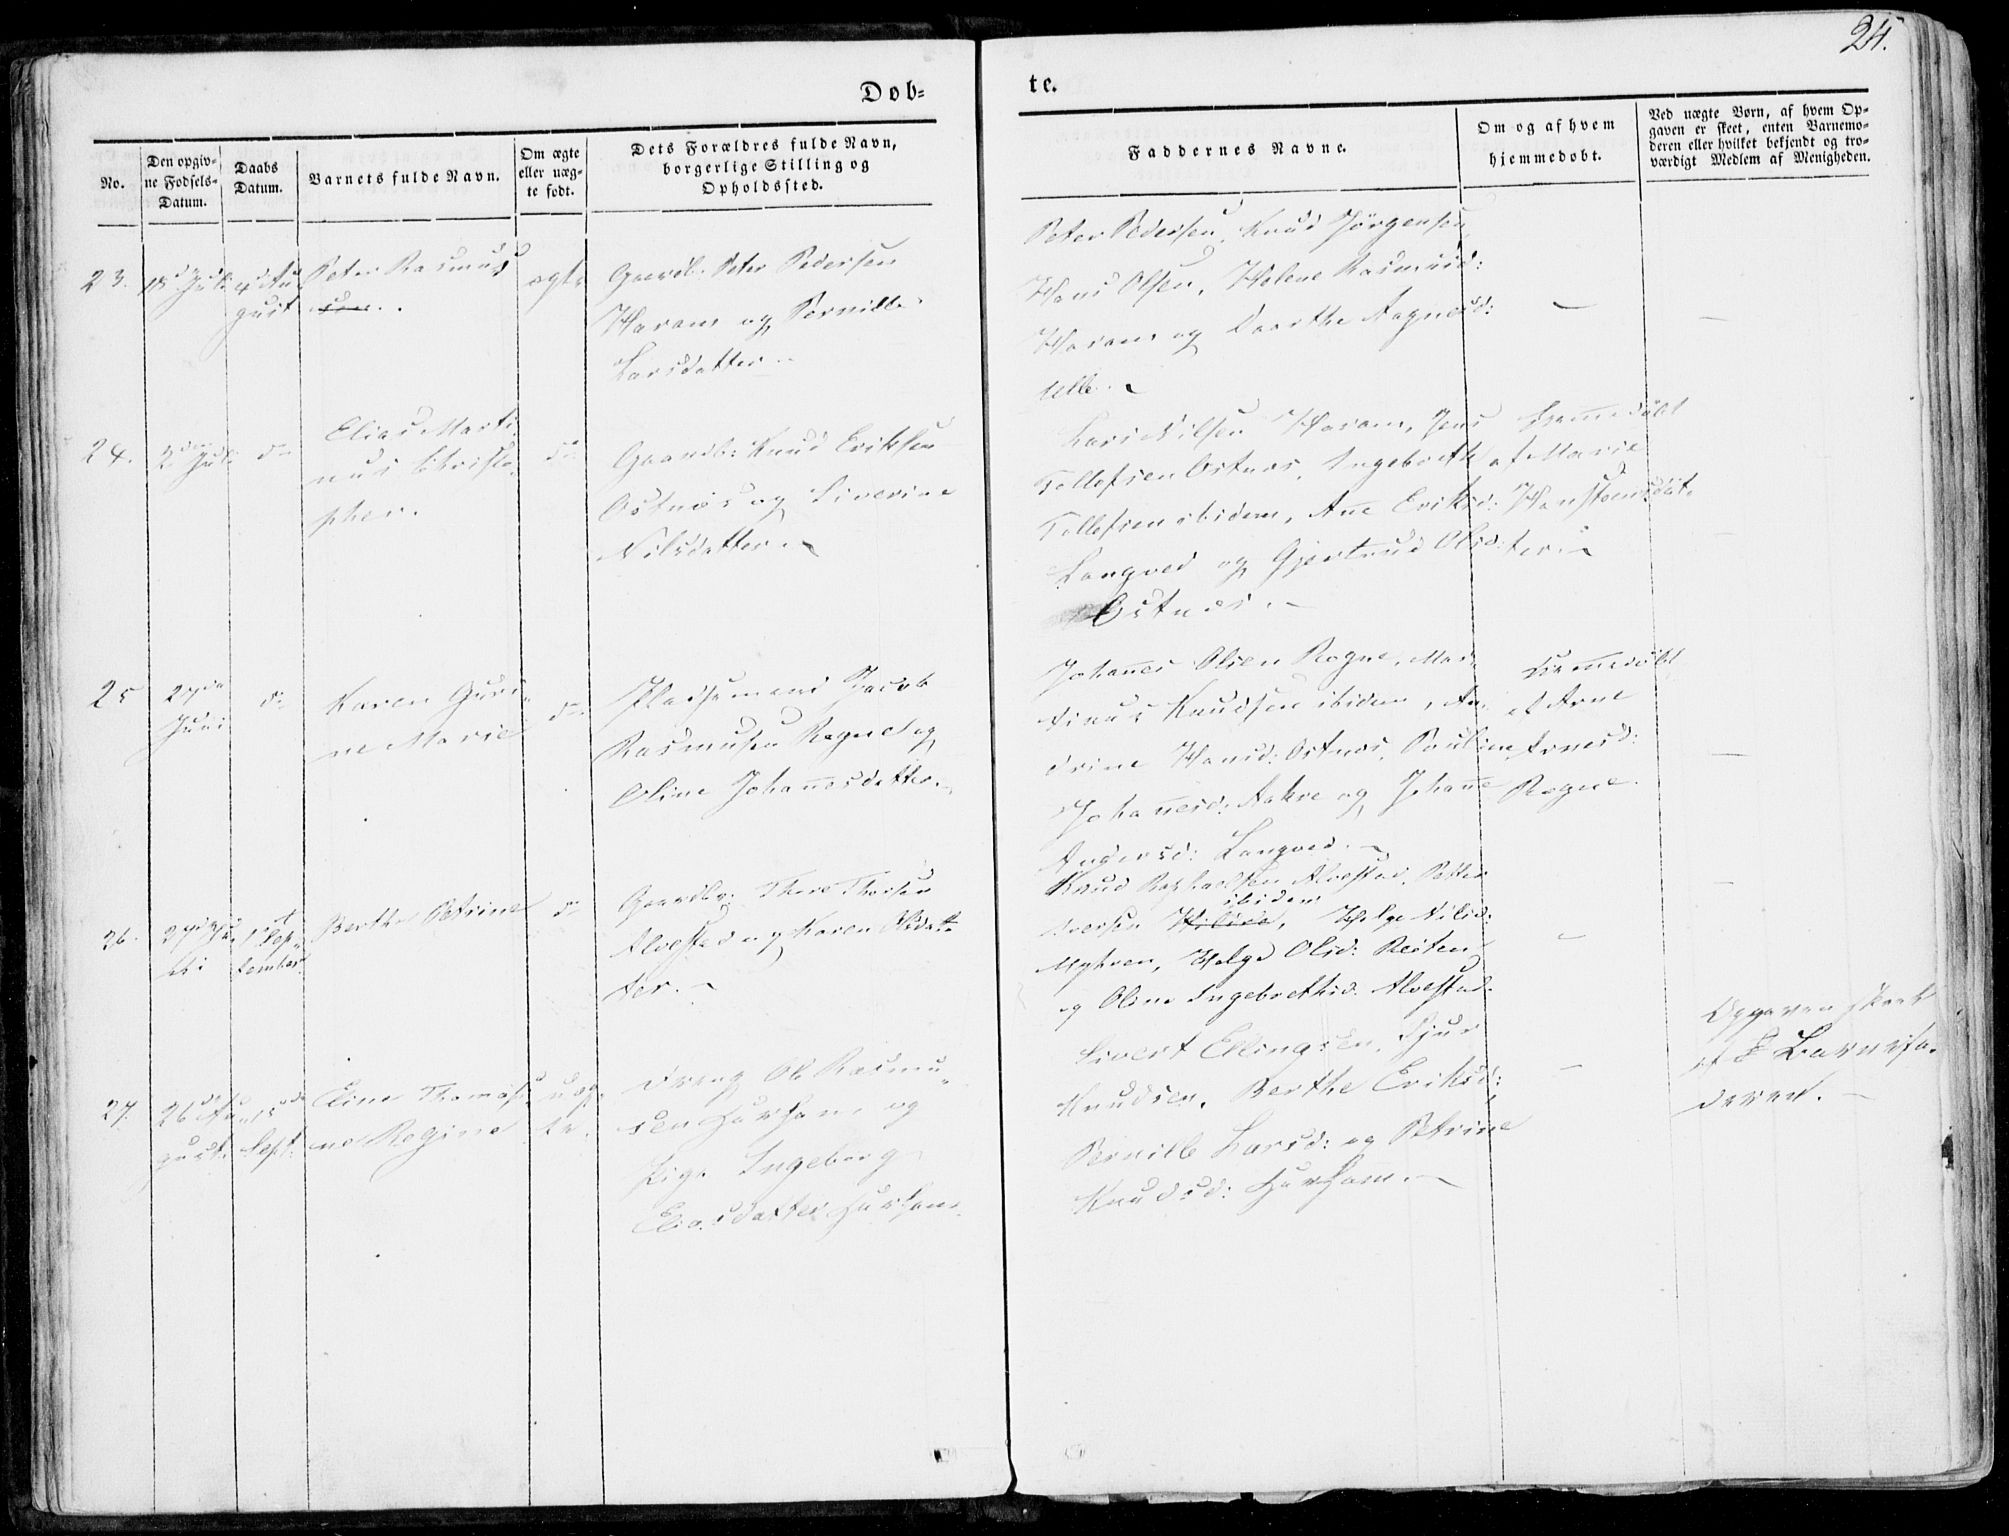 24.
Døb-
te.
No.
Den opgiv-
ne Fødsels-
Datum.
Daabs
Datum.
Barnets fulde Navn.
Om ægte
eller uæg-
te født.
Dets Forældres fulde Navn,
borgerlige Stilling og
Opholdssted.
Faddernes Navne.
Om og af hvem
hjemmedøbt.
Ved uægte Børn, af hvem Op-
gaven er skeet, enten Barnemo-
deren eller hvilket bekjendt og tro-
værdigt Medlem af Menigheden.
23.
18de Juli
4de Au
gust
Peter Rasmus
ægte
Gaardb. Peter Pedersen
Haram og Pernille
Larsdatter.
Peter Pedersen, Knud Jørgensen,
Hans Olsen, Helene Rasmusd:
Haram og Dorthe Aagesd:
Ulle.
—
—
24.
2den Juli
do
Elias Marti
nus Christo-
pher.
do
Gaardb: Knud Eriksen
Østnæs og Siverine
Nilsdatter.
Lars Nilsen Haram, Jens
Tollefsen Østnæs, Ingebreth
Tollefsen ibidem, Ane Eriksd:
Longved og Gjertrud Olsd:
Østnæs.
Hjemmedøbt
af Marie
Hanstensdat-
ter.
25
27de
Juni
do
Karen Guri-
ne Marie
do
Pladsemand Jacob
Rasmusen Rogne og
Oline Johannesdatter.
Johannes Olsen Rogne, Mar-
tinus Knudsen ibidem, An-
drine Hansd: Østnæs, Pauline
Johannesd: Aakre og Johanne
Andersd: Longved.
Hjemmedøbt
af Arne
Arnesd:
Rogne.
—
26.
27de Ju-
li
1st Sep-
tember
Berthe Petrine
do
Gaardbr: Thore Thorsen
Alvestad og Karen Olsdat-
ter.
Knud Raphaelsen Alvestad, Petter
Iversen ibidem, Helge Nilsd:
Myhren, Helge Olsd: Reiten
og Oline Ingebrethsd. Alvestad.
—
—
27.
26de Au-
gust.
15de
Sept.
Eline Thomasi-
ne Regine
uæg-
te.
Dreng Ole Rasmu-
sen Hurham og
Pige Ingeborg
Eliasdatter Hurham.
Sivert Ellingsen, Sjur
Knudsen, Berthe Eriksd:
Pernille Larsd: og Petrine
Knudsd: Hurham.
—
Opgaven skeet
af Barnefa-
deren.